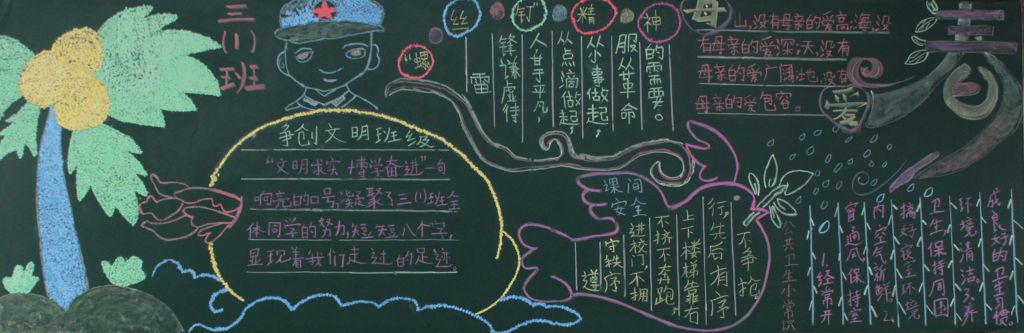 三(1)班
争创文明班级
"文明求实 博学奋进"一句
响亮的口号,凝聚了三(1)班全
体同学的努力,短短八个字,
显现着我们走过的足迹。
"螺丝钉"精神
雷
锋谦虚待
人甘于平凡,
从点滴做起,
从小事做起,
服从革命
的需要。
母爱
山,没有母亲的爱高;海,没
有母亲的爱深;天,没有
母亲的爱广阔;地,没有
母亲的爱包容。
春
课间
安全
遵
守秩序
进校门,不拥
不挤不奔跑,
上下楼梯靠右
行,先后有序
不争抢
公共卫生小常识
1.经常开
窗通风保持室
内空气新鲜。2.
搞好寝室环境
卫生保持周围
环境清洁。3.养
成良好的卫生习惯。